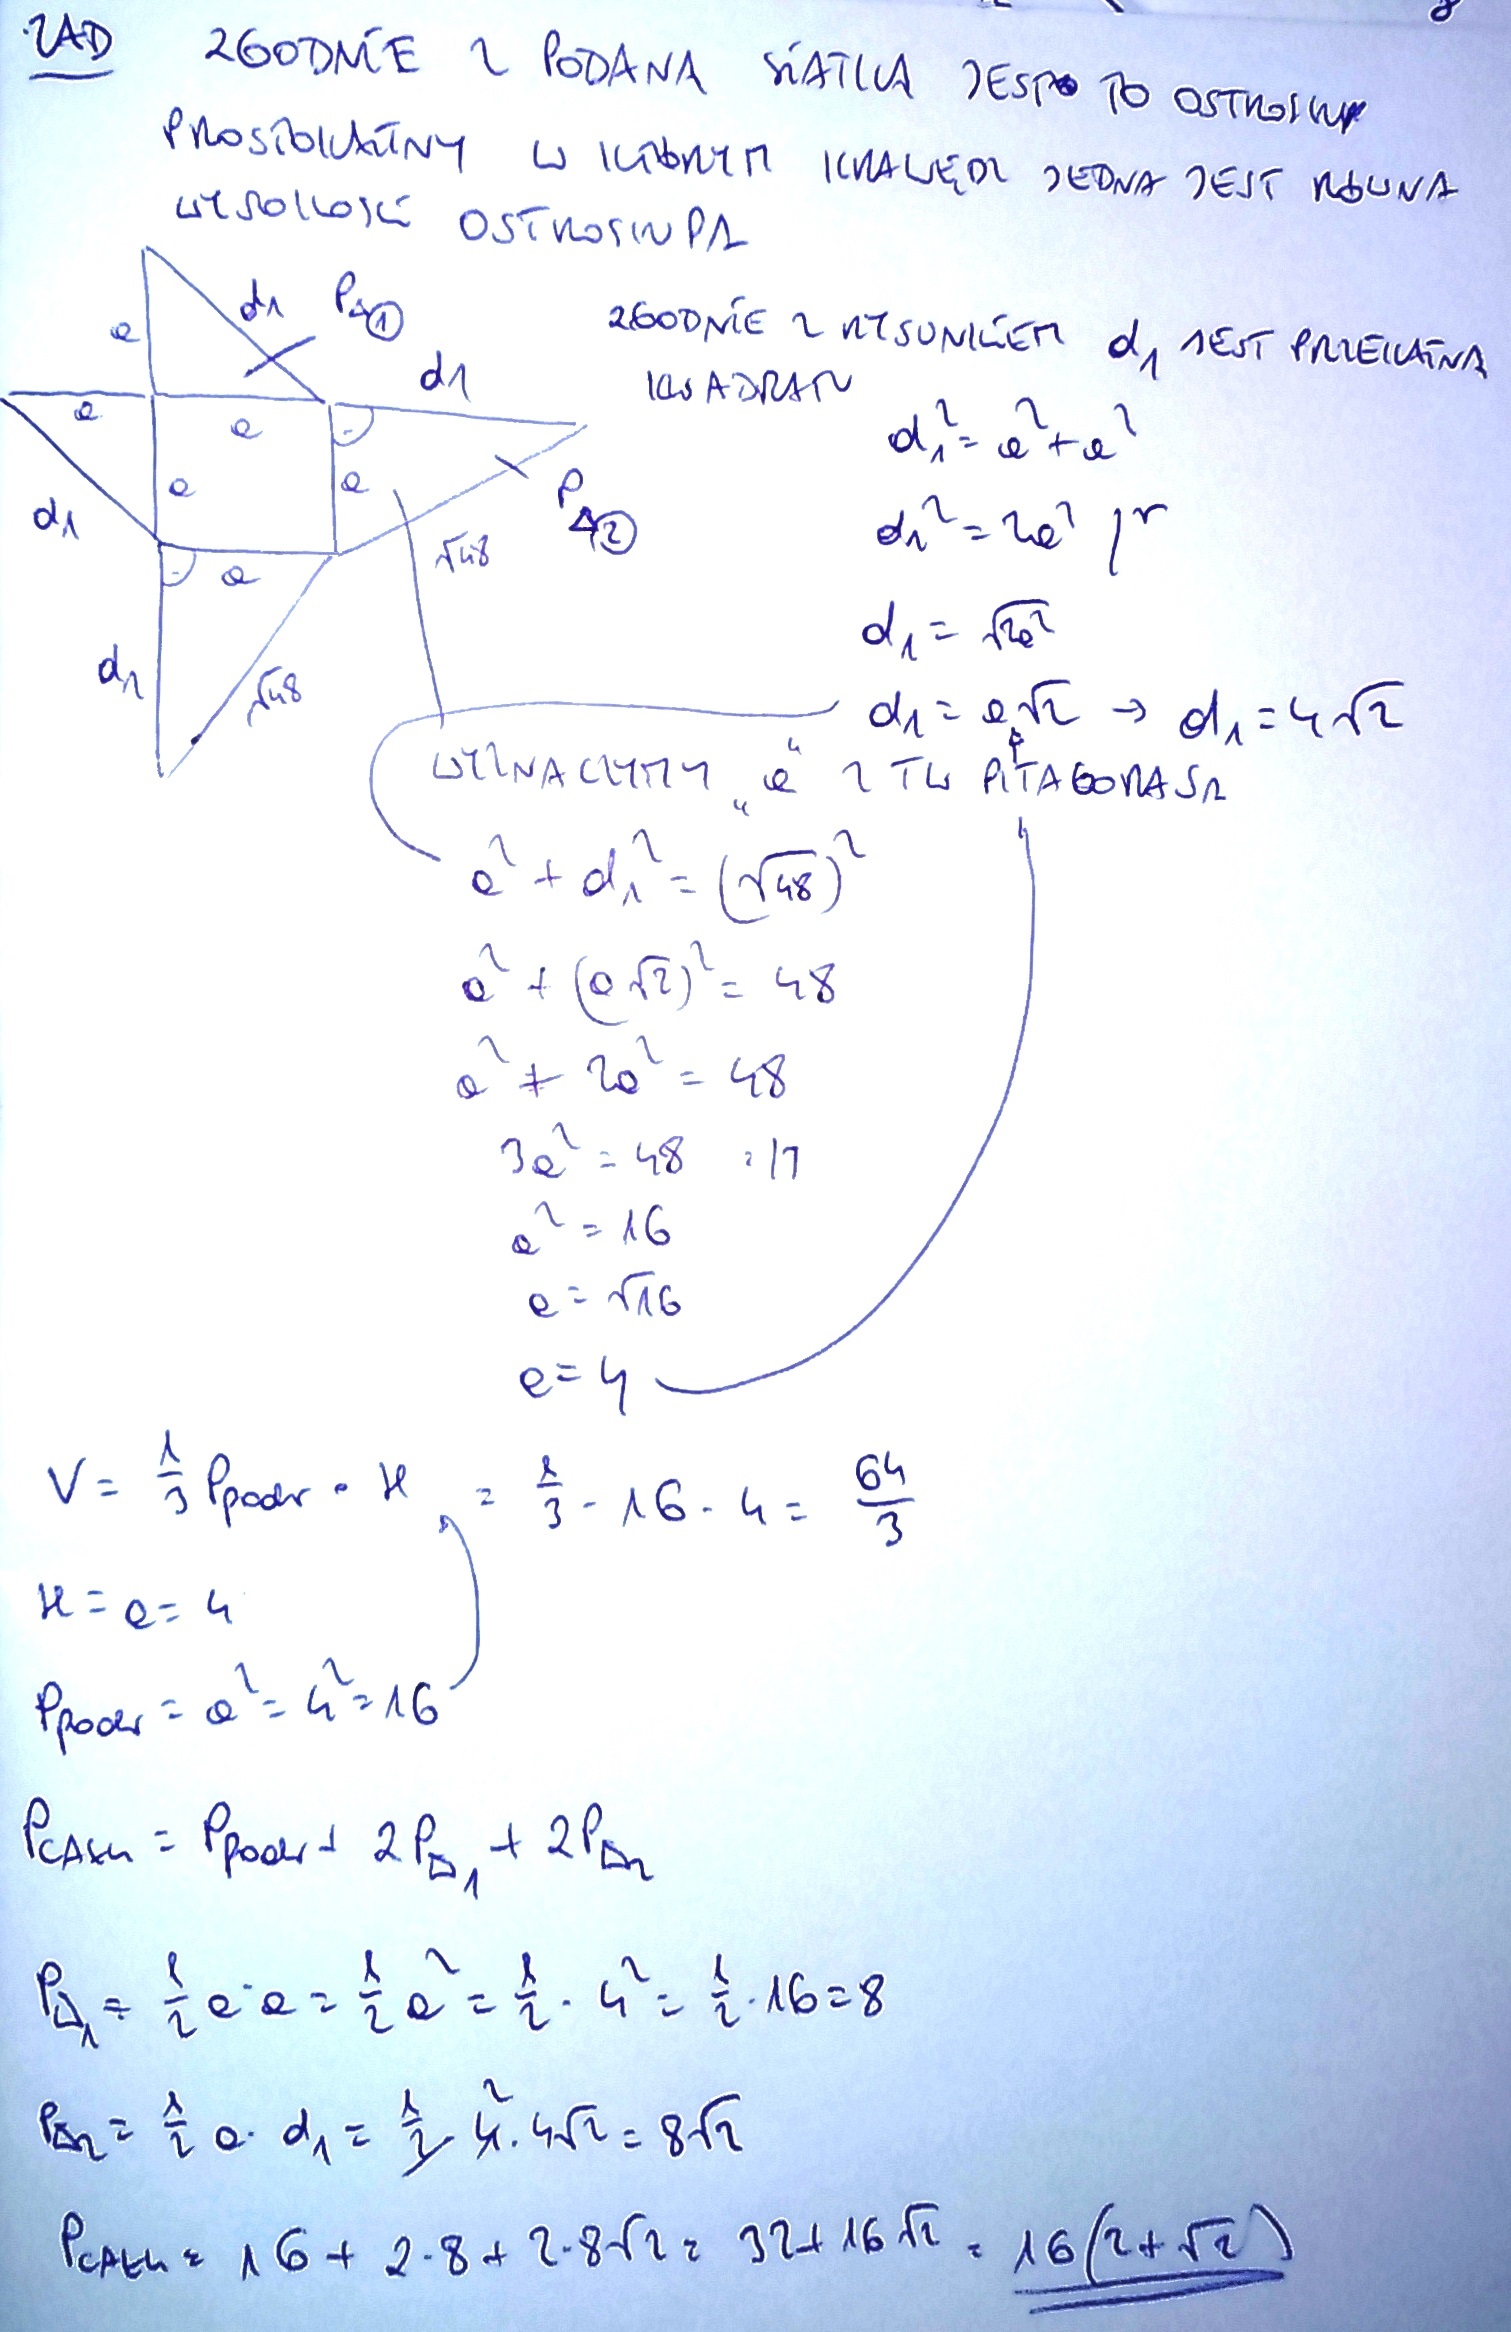 ZAD ZGODNIE Z PODANA SIATKA JEST TO OSTROSŁUP
PROSTOKĄTNY W KTÓRYM KRAWĘDZ JEDNA JEST RÓWNA
WYSOKOŚĆ OSTROSŁUPA
a d1 P△①
d1
a a
a a
d1 P△②
√48
a
d1 √48
ZGODNIE Z RYSUNKIEM d1 JEST PRZEKĄTNA
KWADRATU
d1² = a² + a²
d1² = 2a² /√
d1 = √2a²
d1 = a√2 → d1 = 4√2
WYZNACZYMY „a” Z TW PITAGORASA
a² + d1² = (√48)²
a² + (a√2)² = 48
a² + 2a² = 48
3a² = 48
a² = 16
a = √16
a = 4
V = 1/3 Ppodst · H = 1/3 · 16 · 4 = 64/3
H = a = 4
Ppodst = a² = 4² = 16
PCAŁK = Ppodst + 2P△1 + 2P△2
P△1 = 1/2 a · a = 1/2 a² = 1/2 · 4² = 1/2 · 16 = 8
P△2 = 1/2 a · d1 = 1/2 · 4 · 4√2 = 8√2
PCAŁK = 16 + 2·8 + 2·8√2 = 32 + 16√2 = 16(2+√2)